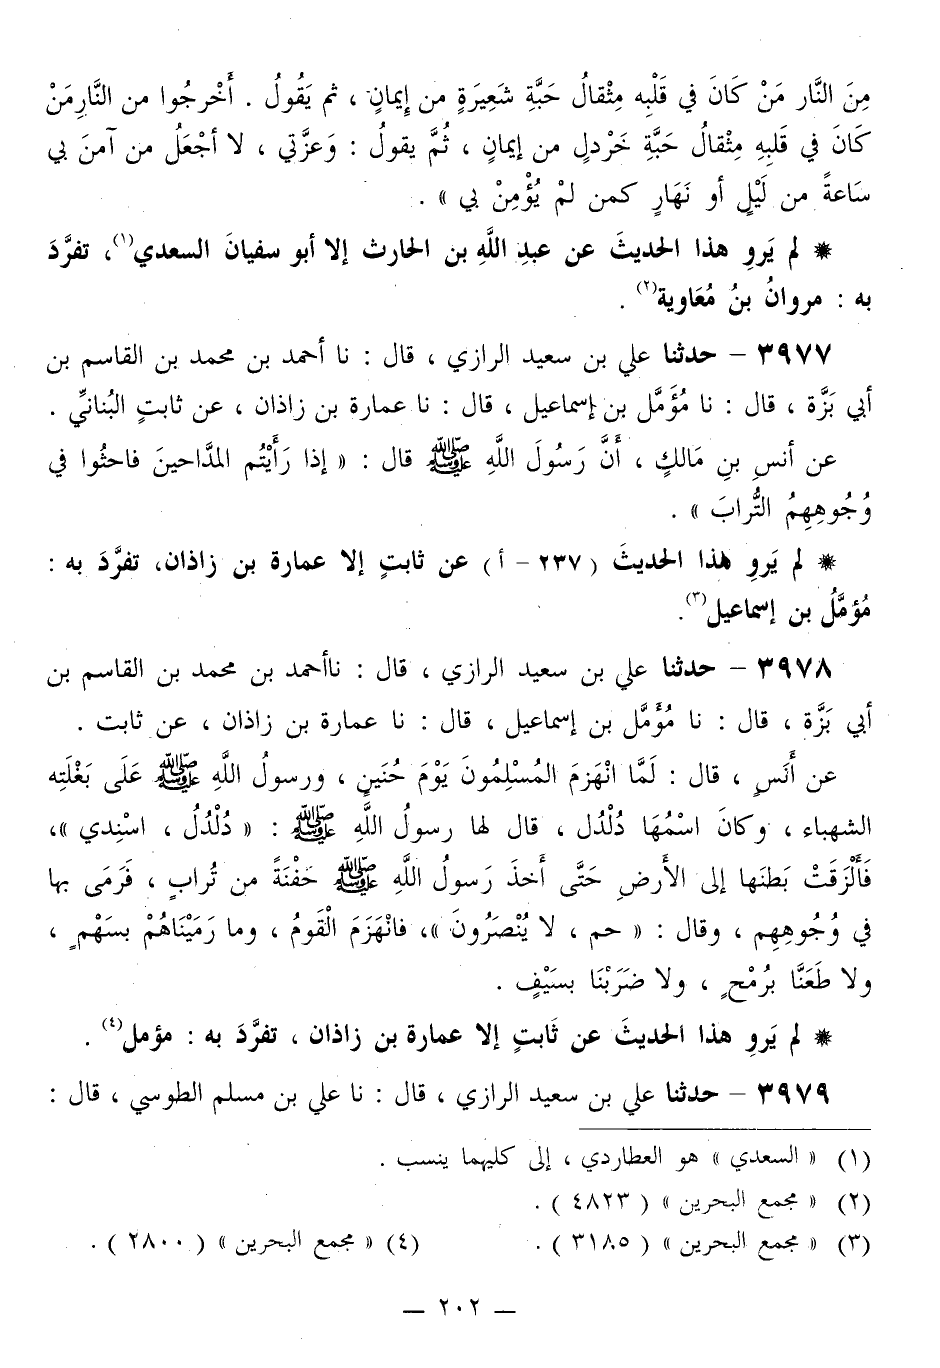 مِنَ النَّار مَنْ كَانَ في قَلْبِه مِثْقالُ حَبَّةِ شَعِيرَةٍ من إِيمانٍ ، ثم يَقُولُ . أَخْرجُوا من النَّارِ مَنْ
كَانَ في قَلبِهِ مِثْقالُ حَبَّةِ خَرْدلٍ من إيمانٍ ، ثُمَّ يقولُ : وَعزَّتي ، لا أجْعَلُ من آمنَ بي
سَاعةً من لَيْلٍ أو نَهَارٍ كمن لمْ يُؤْمِنْ بي » .
* لم يَروِ هذا الحديثَ عن عبدِ اللَّهِ بن الحارث إلا أبو سفيانَ السعدي(١)، تفرَّدَ
به : مروانُ بنُ مُعَاوية(٢) .
٣٩٧٧ – حدثنا علي بن سعيد الرازي ، قال : نا أحمد بن محمد بن القاسم بن
أبي بَزَّة ، قال : نا مُؤَمَّل بن إسماعيل ، قال : نا عمارة بن زاذان ، عن ثابتٍ البُنانيِّ .
عن أنسِ بنِ مَالكٍ ، أَنَّ رَسُولَ اللَّهِ ﷺ قال : « إذا رَأَيْتُم المدَّاحينَ فاحثُوا في
وُجُوهِهِمُ التُّرابَ » .
* لم يَروِ هذا الحديثَ ( ٢٣٧ – أ ) عن ثابتٍ إلا عمارة بن زاذان، تفرَّدَ به :
مُؤمَّلُ بن إسماعيل(٣).
٣٩٧٨ – حدثنا علي بن سعيد الرازي ، قال : ناأحمد بن محمد بن القاسم بن
أبي بَزَّة ، قال : نا مُؤَمَّل بن إسماعيل ، قال : نا عمارة بن زاذان ، عن ثابت .
عن أَنَسٍ ، قال : لَمَّا انْهَزمَ المُسْلِمُونَ يَوْمَ حُنَينٍ ، ورسولُ اللَّهِ ﷺ عَلَى بَغْلَتِه
الشهباء ، وكانَ اسْمُهَا دُلْدُل ، قال لها رسولُ اللَّهِ ﷺ : « دُلْدُلُ ، اسْنِدي »،
فَأَلْزَقَتْ بَطنَها إلى الأَرضِ حَتَّى أَخذَ رَسولُ اللَّهِ ﷺ حَفْنَةً من تُرابٍ ، فَرَمَى بها
في وُجُوهِهِم ، وقال : « حم ، لا يُنْصَرُونَ »، فانْهَزَمَ الْقَومُ ، وما رَمَيْنَاهُمْ بسَهْمٍ ،
ولا طَعَنَّا بِرُمْحٍ ، ولا ضَرَبْنَا بسَيْفٍ .
* لم يَروِ هذا الحديثَ عن ثَابتٍ إلا عمارة بن زاذان ، تفرَّدَ به : مؤمل(٤) .
٣٩٧٩ – حدثنا علي بن سعيد الرازي ، قال : نا علي بن مسلم الطوسي ، قال :
(١) « السعدي » هو العطاردي ، إلى كليهما ينسب .
(٢) « مجمع البحرين » ( ٤٨٢٣ ) .
(٣) « مجمع البحرين » ( ٣١٨٥ ) . (٤) « مجمع البحرين » ( ٢٨٠٠ ) .
— ٢٠٢ —